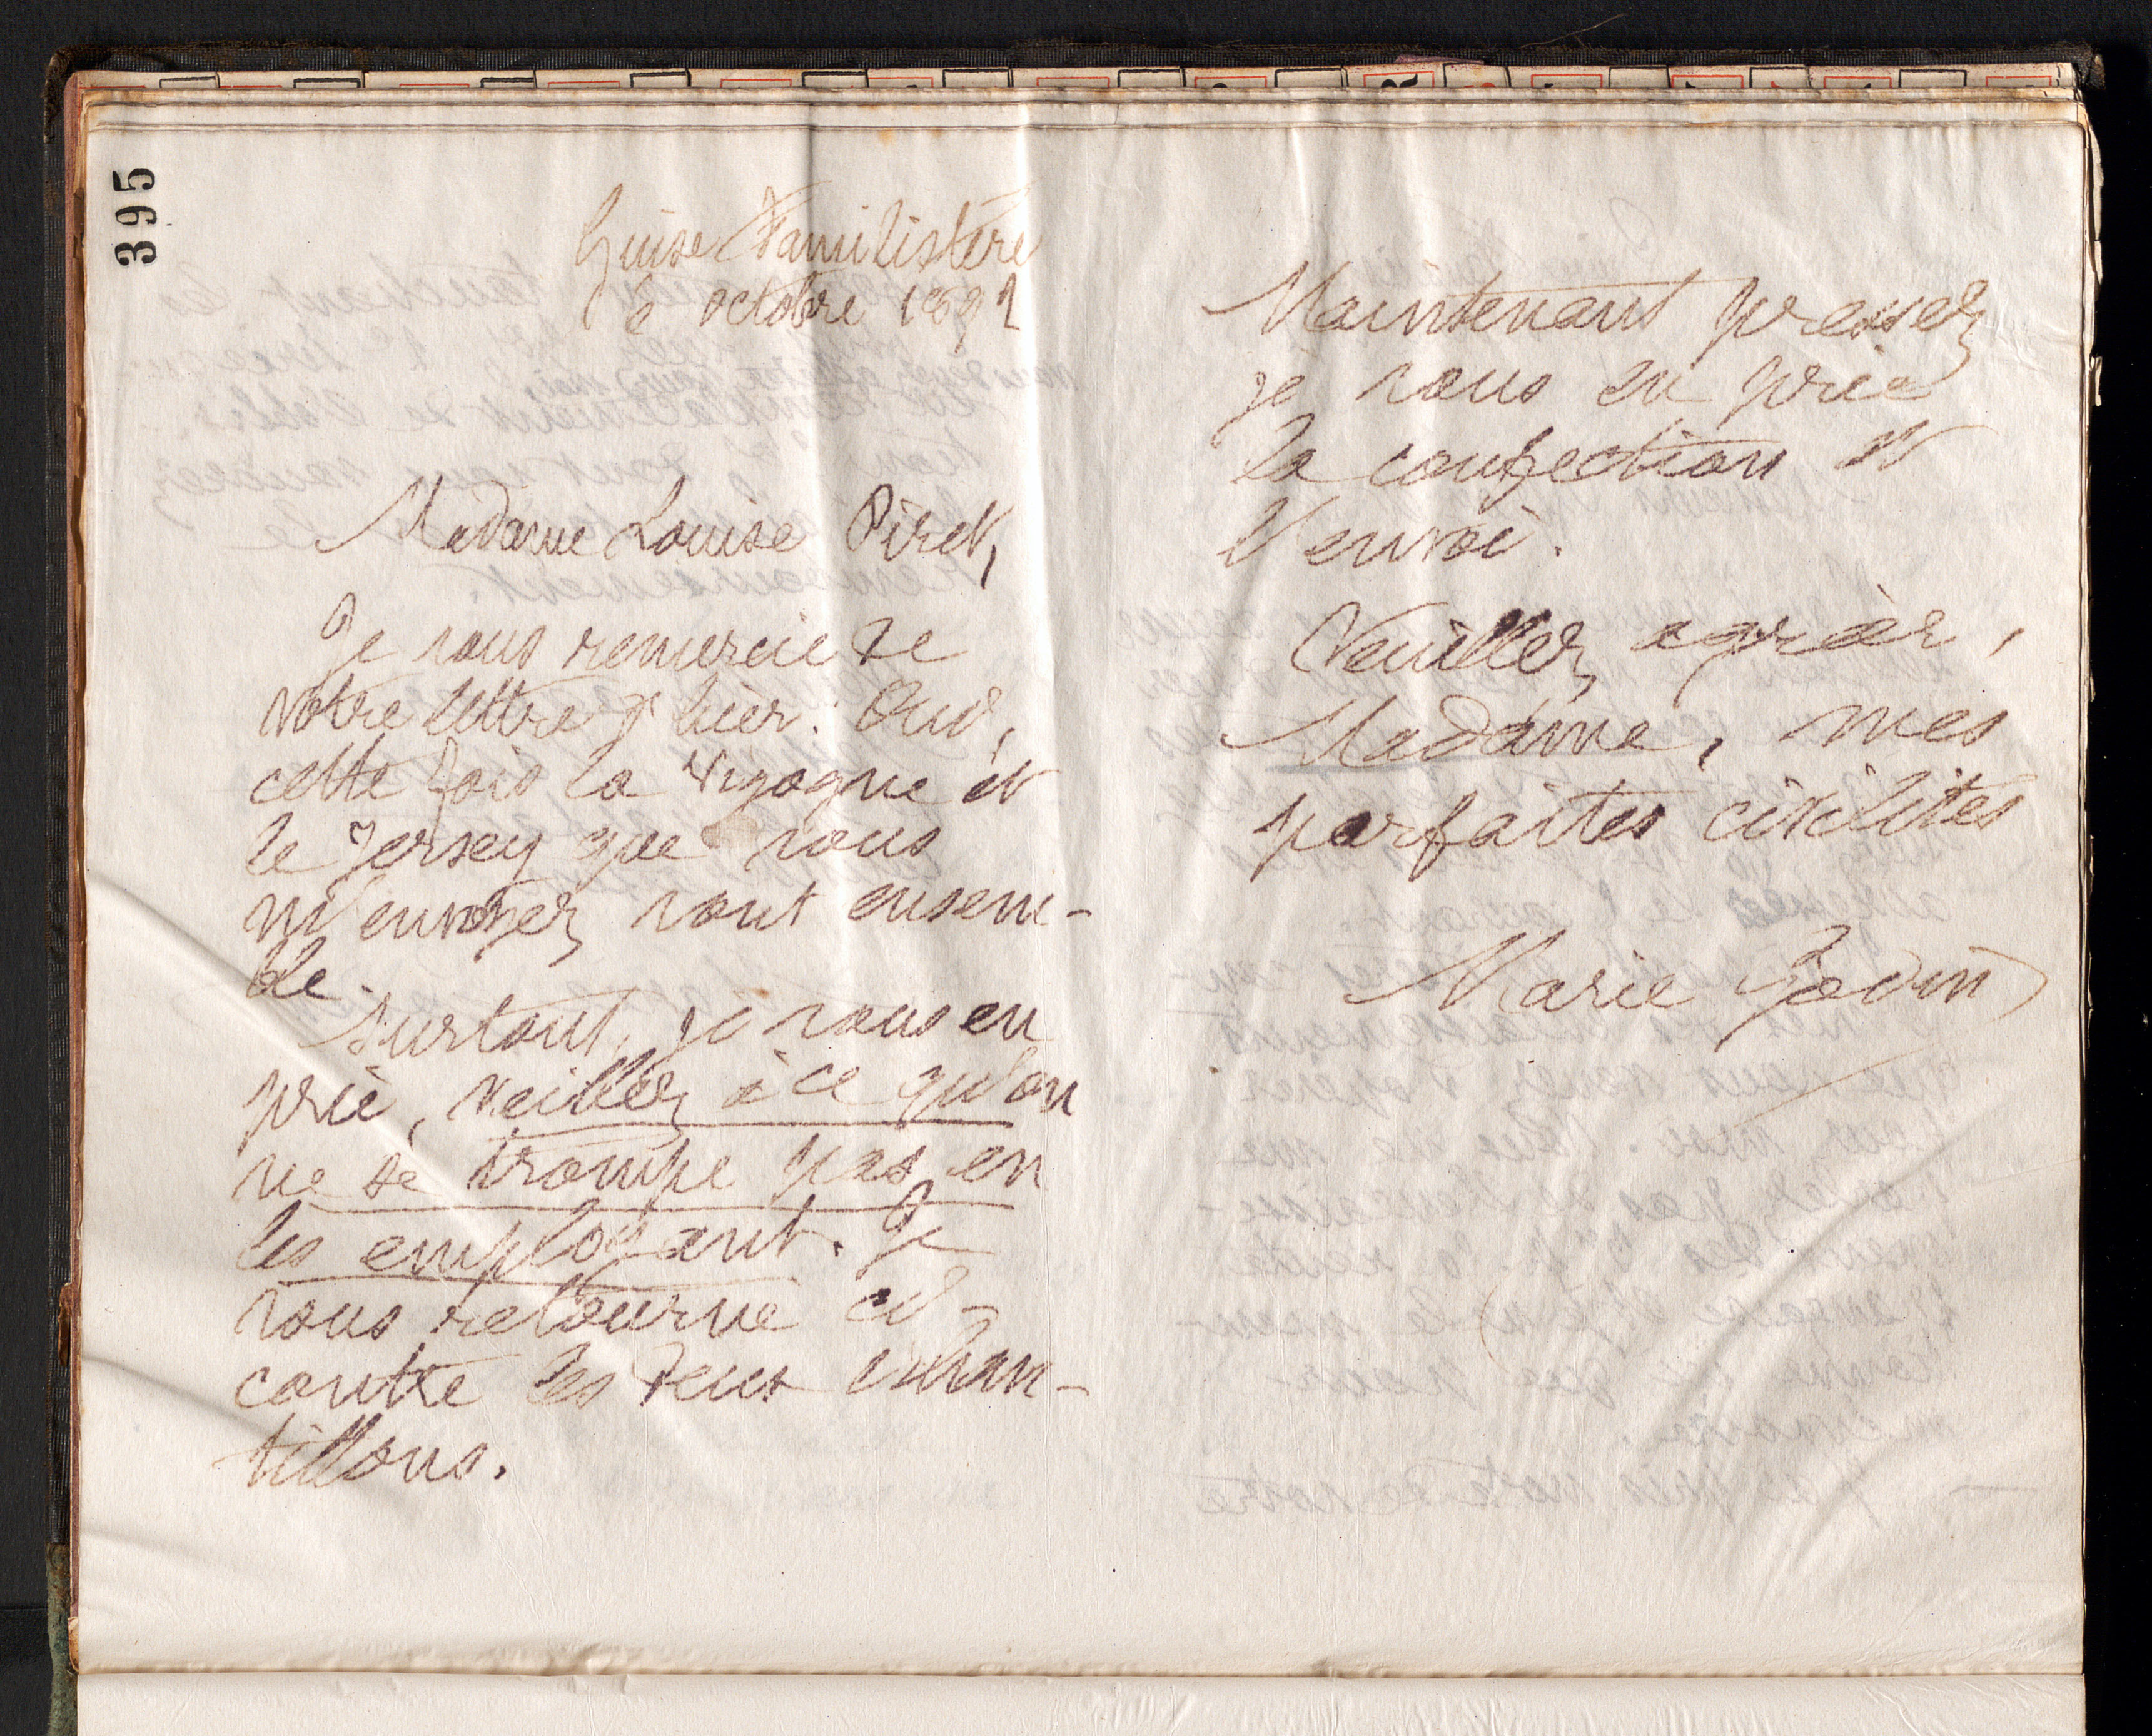 395
Guise Familistère
6 octobre 1892
Madame Louise Piret,
Je vous remercie de
votre lettre d'hier. Oui,
cette fois la Vigogne et
le Jersey que vous
m'envoyez vont ensem-
ble.
Surtout, je vous en
prie, veillez à ce qu'on
ne se trompe pas en
les employant. Je
vous retourne ci-
contre les deux échan-
tillons.
Maintenant pressez
je vous en prie
la confection et
l'envoi.
Veuillez agréer,
Madame, mes
parfaites civilités
Marie Godin